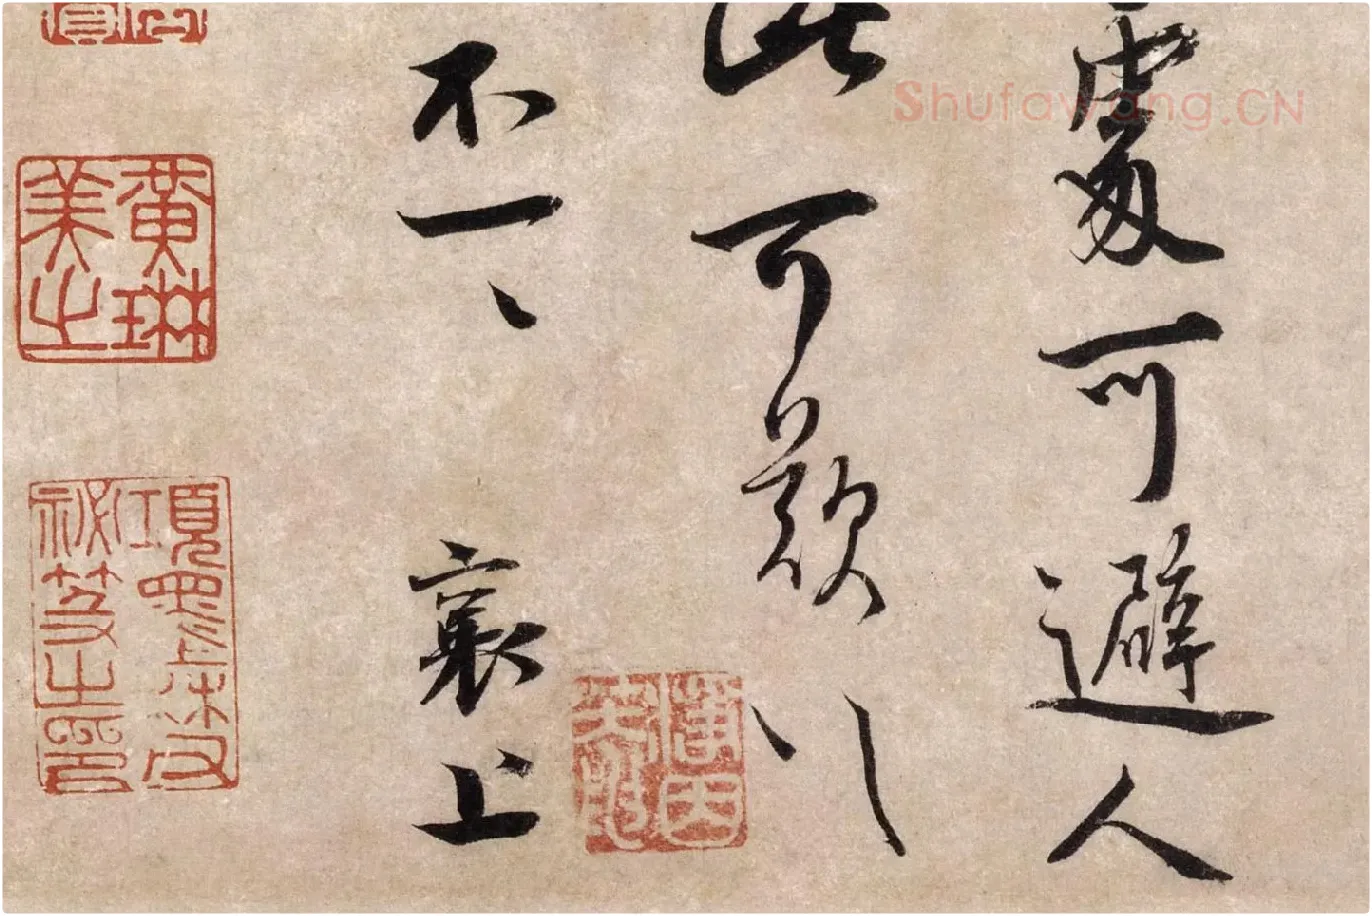 處可避人
此可歎〻
不一〻襄上
黃琳美之
項墨林父秘笈之印
Shufawang.CN